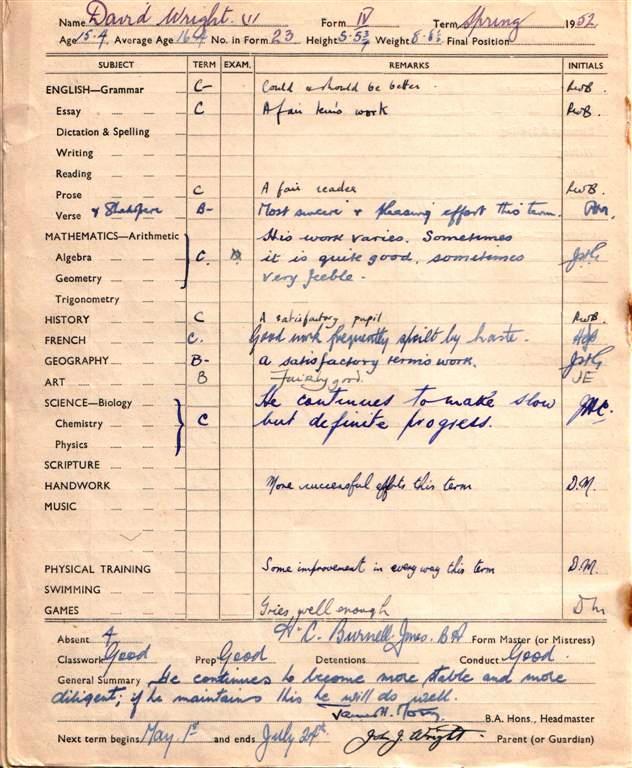 Name David Wright. VI Form IV Term Spring 1952
Age 15.4 Average Age 16.4 No. in Form 23 Height 5-5¾ Weight 8-6½ Final Position
SUBJECT TERM EXAM. REMARKS INITIALS
ENGLISH—Grammar C- Could & should be better. RWB.
Essay C A fair term's work RWB.
Dictation & Spelling
Writing
Reading
Prose C A fair reader RWB.
Verse & Shakspere B- Most sincere & pleasing effort this term.
MATHEMATICS—Arithmetic His work varies. Sometimes
Algebra C. it is quite good, sometimes JStG
Geometry very feeble.
Trigonometry
HISTORY C A satisfactory pupil RWB.
FRENCH C. Good work frequently spoilt by haste.
GEOGRAPHY B- a satisfactory term's work. JStG
ART B Fairly good. JE
SCIENCE—Biology He continues to make slow JMC.
Chemistry C but definite progress.
Physics
SCRIPTURE
HANDWORK More successful efforts this term D.M.
MUSIC
PHYSICAL TRAINING Some improvement in every way this term D.M.
SWIMMING
GAMES Tries well enough
Absent 4 H. C. Burnell Jones. BA Form Master (or Mistress)
Classwork Good Prep Good Detentions Conduct Good.
General Summary He continues to become more stable and more
diligent; if he maintains this he will do well.
B.A. Hons., Headmaster
Next term begins May 1st and ends July 24th. John J. Wright. Parent (or Guardian)